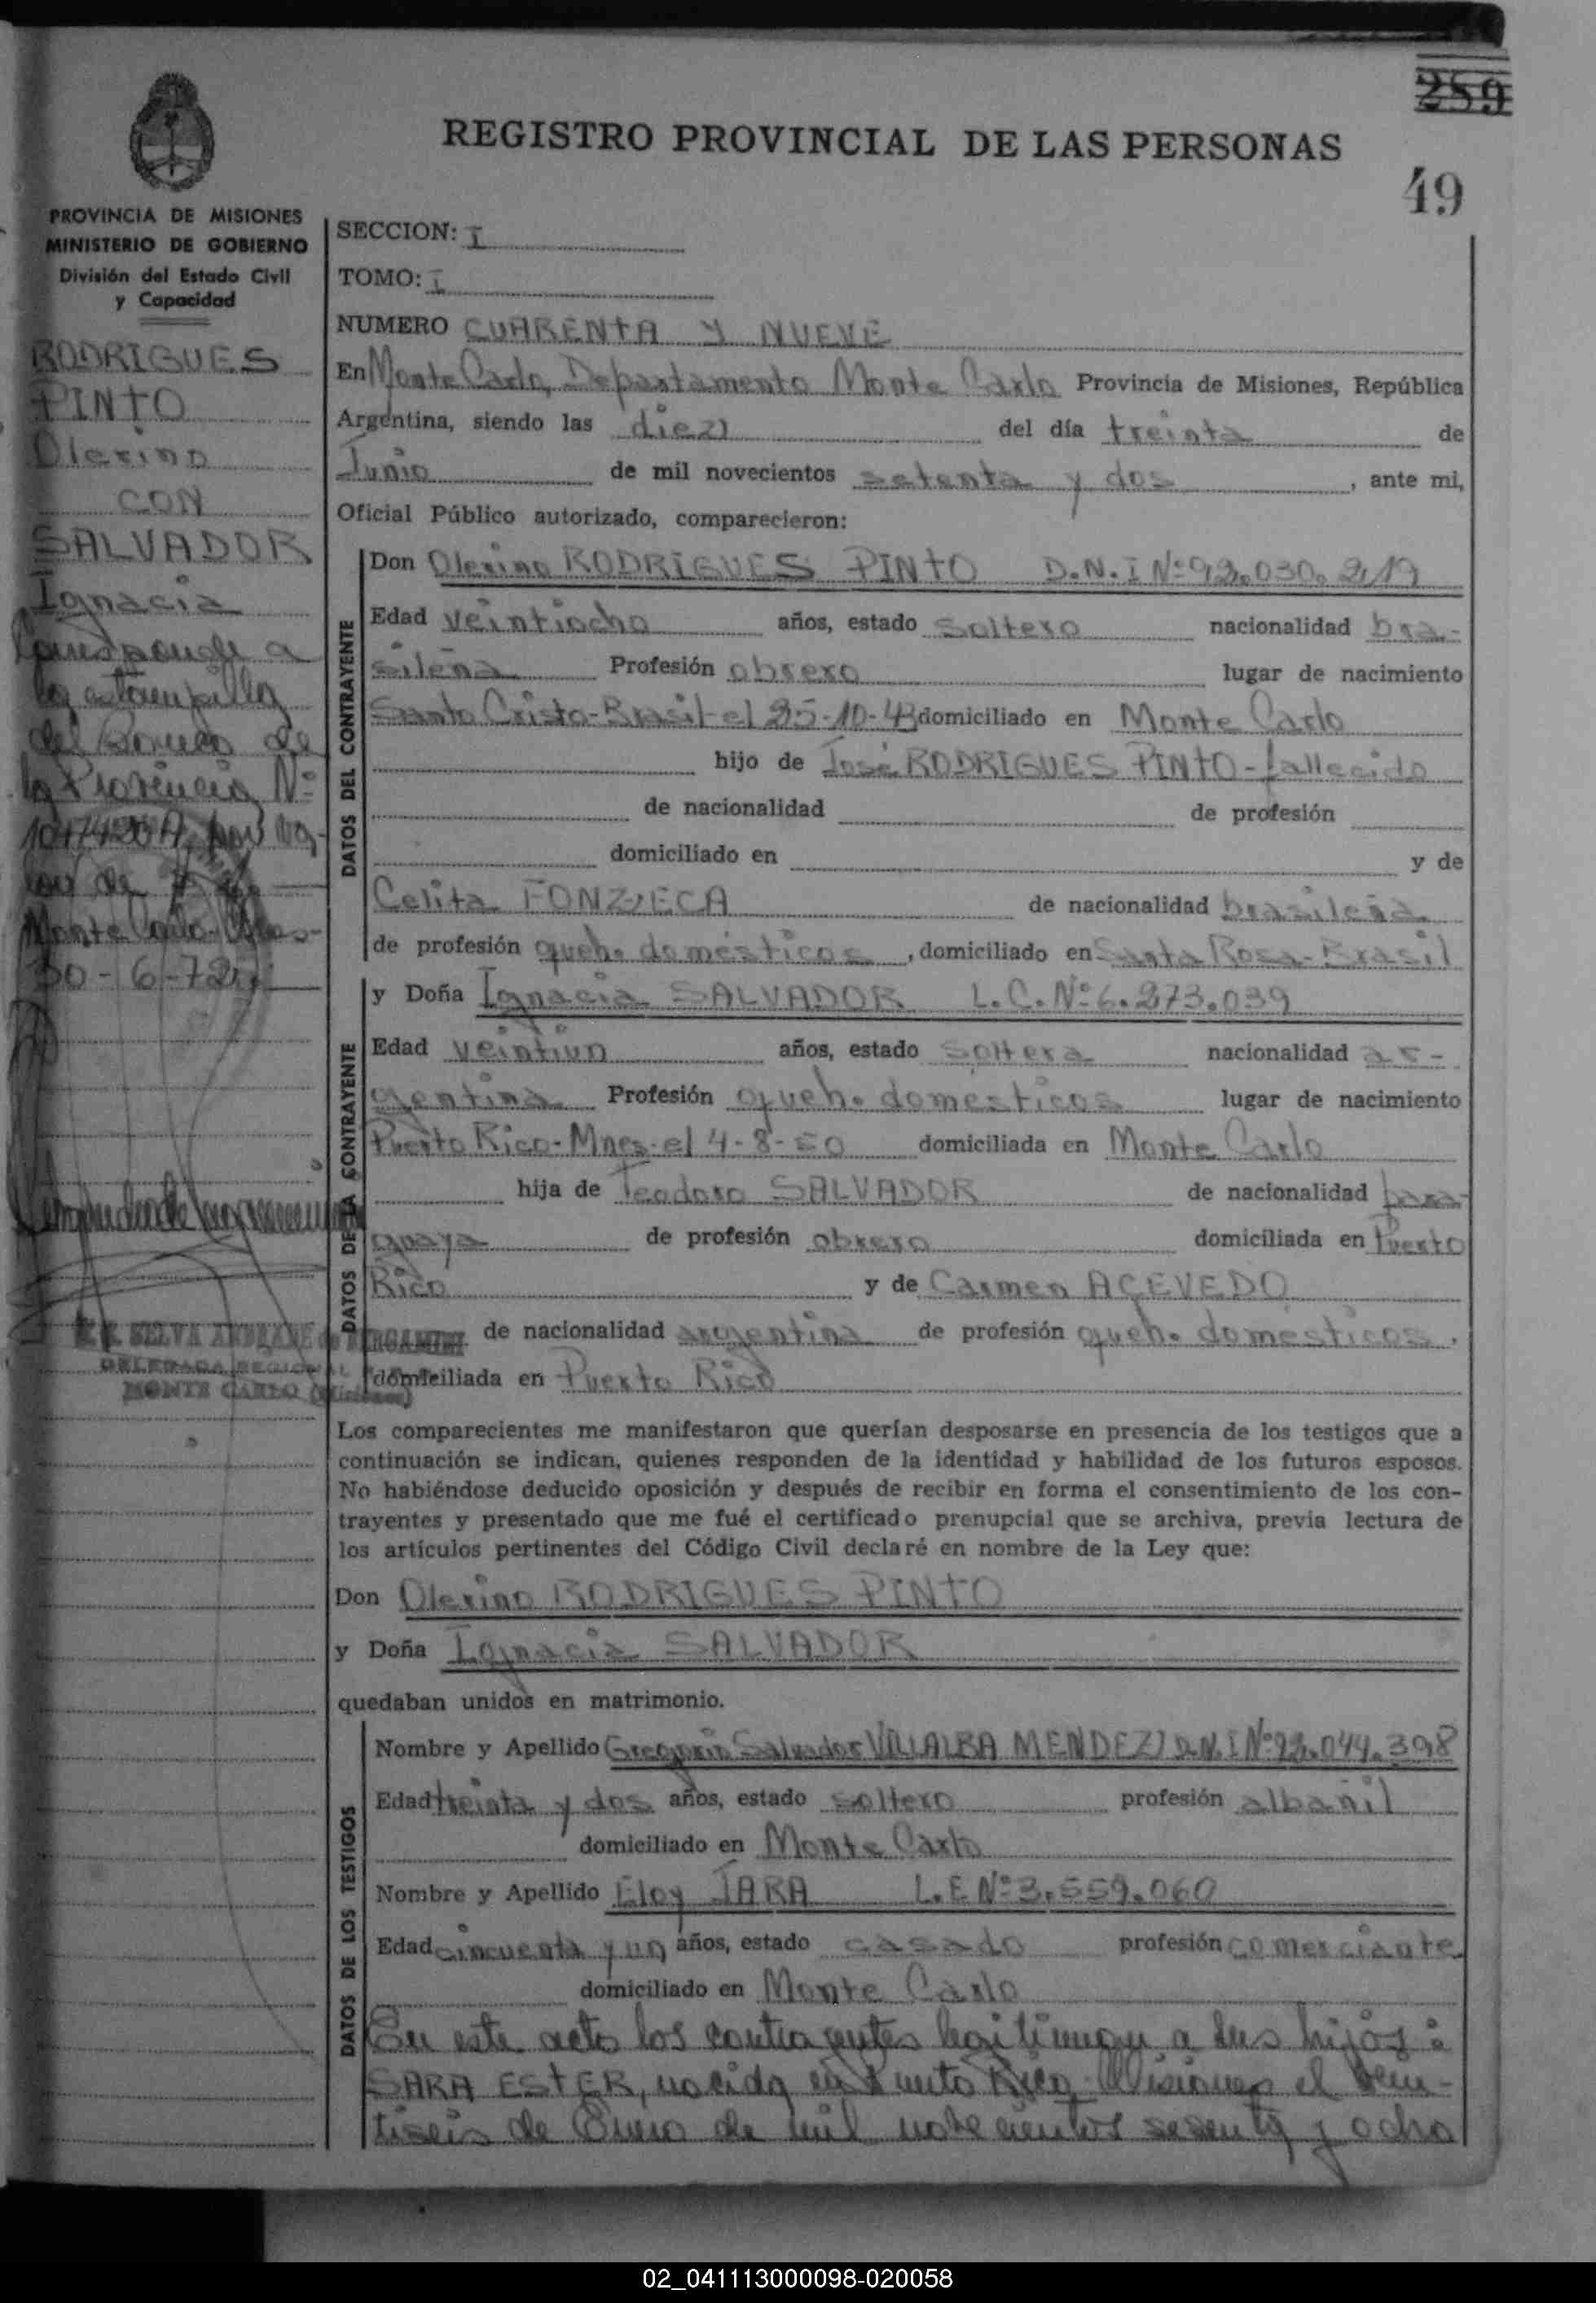 259
REGISTRO PROVINCIAL DE LAS PERSONAS
49
PROVINCIA DE MISIONES
MINISTERIO DE GOBIERNO
División del Estado Civil
y Capacidad
RODRIGUES
PINTO
Olerino
CON
SALVADOR
Ignacia
Corresponde a
la estampilla
del Banco de
la Provincia Nº
por va-
lor de
Monte Carlo-
30-6-72
DELEGADA REGIONAL
MONTE CARLO
SECCION: I
TOMO: I
NUMERO CUARENTA Y NUEVE
En Monte Carlo, Departamento Monte Carlo Provincia de Misiones, República
Argentina, siendo las diez del día treinta de
Junio de mil novecientos setenta y dos, ante mi,
Oficial Público autorizado, comparecieron:
DATOS DEL CONTRAYENTE
Don Olerino RODRIGUES PINTO D.N.I Nº 92.030.219
Edad veintiocho años, estado soltero nacionalidad bra-
sileña Profesión obrero lugar de nacimiento
Santo Cristo-Brasil-el 25-10-43 domiciliado en Monte Carlo
hijo de José RODRIGUES PINTO-fallecido
de nacionalidad de profesión
domiciliado en y de
Celita FONZECA de nacionalidad brasileña
de profesión queh. domésticos, domiciliado en Santa Rosa-Brasil
DATOS DE LA CONTRAYENTE
y Doña Ignacia SALVADOR L.C.Nº 6.273.039
Edad veintiun años, estado soltera nacionalidad ar-
gentina Profesión queh. domésticos lugar de nacimiento
Puerto Rico-Mnes-el 4-8-50 domiciliada en Monte Carlo
hija de Teodoro SALVADOR de nacionalidad para-
guaya de profesión obrero domiciliada en Puerto
Rico y de Carmen ACEVEDO
de nacionalidad argentina de profesión queh. domésticos.
domiciliada en Puerto Rico
Los comparecientes me manifestaron que querían desposarse en presencia de los testigos que a
continuación se indican, quienes responden de la identidad y habilidad de los futuros esposos.
No habiéndose deducido oposición y después de recibir en forma el consentimiento de los con-
trayentes y presentado que me fué el certificado prenupcial que se archiva, previa lectura de
los artículos pertinentes del Código Civil declaré en nombre de la Ley que:
Don Olerino RODRIGUES PINTO
y Doña Ignacia SALVADOR
quedaban unidos en matrimonio.
DATOS DE LOS TESTIGOS
Nombre y Apellido Gregorio Salvador VILLALBA MENDEZ D.N.I Nº 92.044.398
Edad treinta y dos años, estado soltero profesión albañil
domiciliado en Monte Carlo
Nombre y Apellido Eloy JARA L.E Nº 3.559.060
Edad cincuenta y un años, estado casado profesión comerciante
domiciliado en Monte Carlo
En este acto los contrayentes legitiman a sus hijos:
SARA ESTER, nacida en Puerto Rico Misiones el vein-
tiseis de Enero de mil novecientos sesenta y ocho
02_041113000098-020058